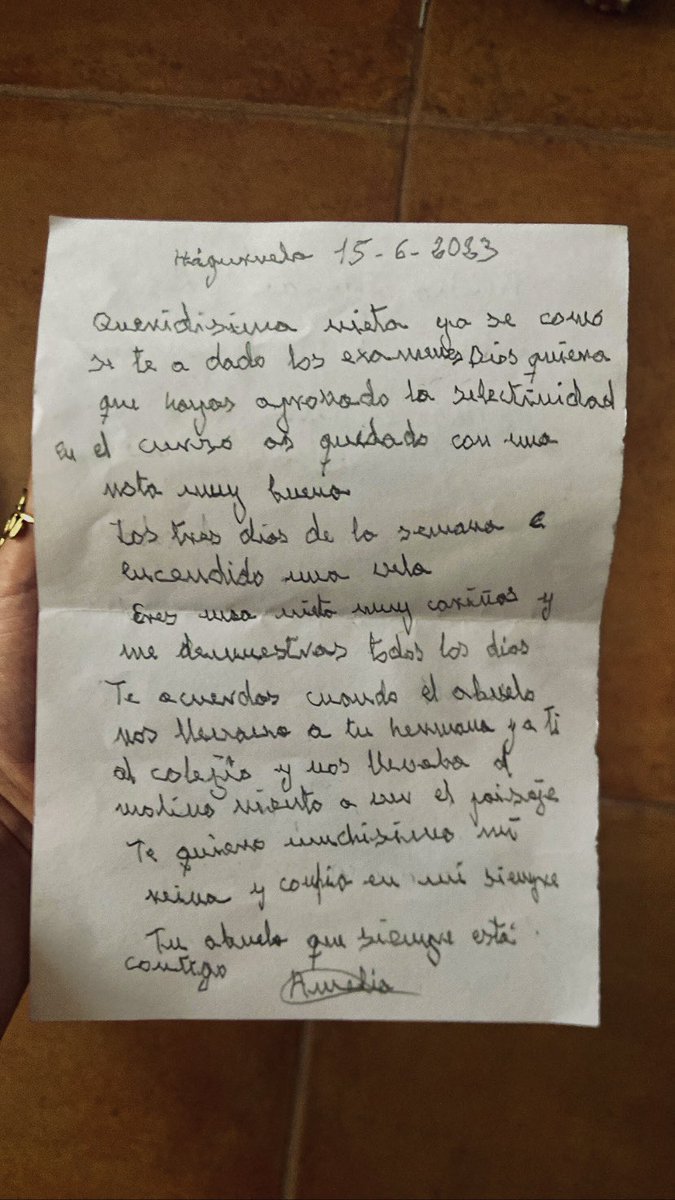 15-6-2023
Queridisima nieta ya se como
se te a dado los examenes Dios quiera
que hayas aprovado la selectividad
En el curso as quedado con una
nota muy buena
Los tres dias de la semana e
encendido una vela
Eres una nieta muy cariños y
me demuestras todos los dias
Te acuerdas cuando el abuelo
nos llevava a tu hermana y a ti
al colegio y nos llevaba al
molino viento a ver el paisaje
Te quiero muchisimo mi
reina y confia en mi siempre
Tu abuela que siempre está
contigo Amelia